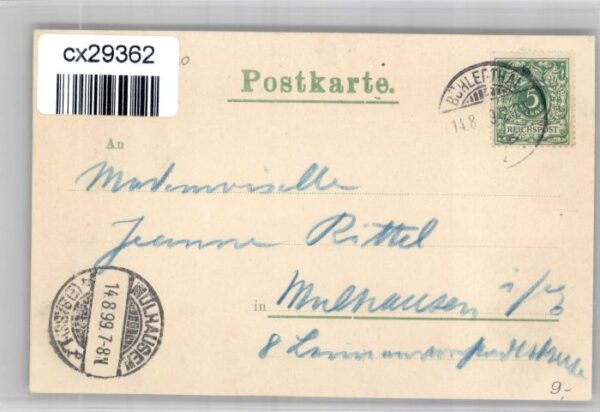 cx29362
Postkarte.
BÜHLERTHAL
14.8.
5
REICHSPOST
An
Mademoiselle
Jeanne Rittel
in Mulhausen i/E
8
MÜLHAUSEN
14.8.99.7-8N
9.-